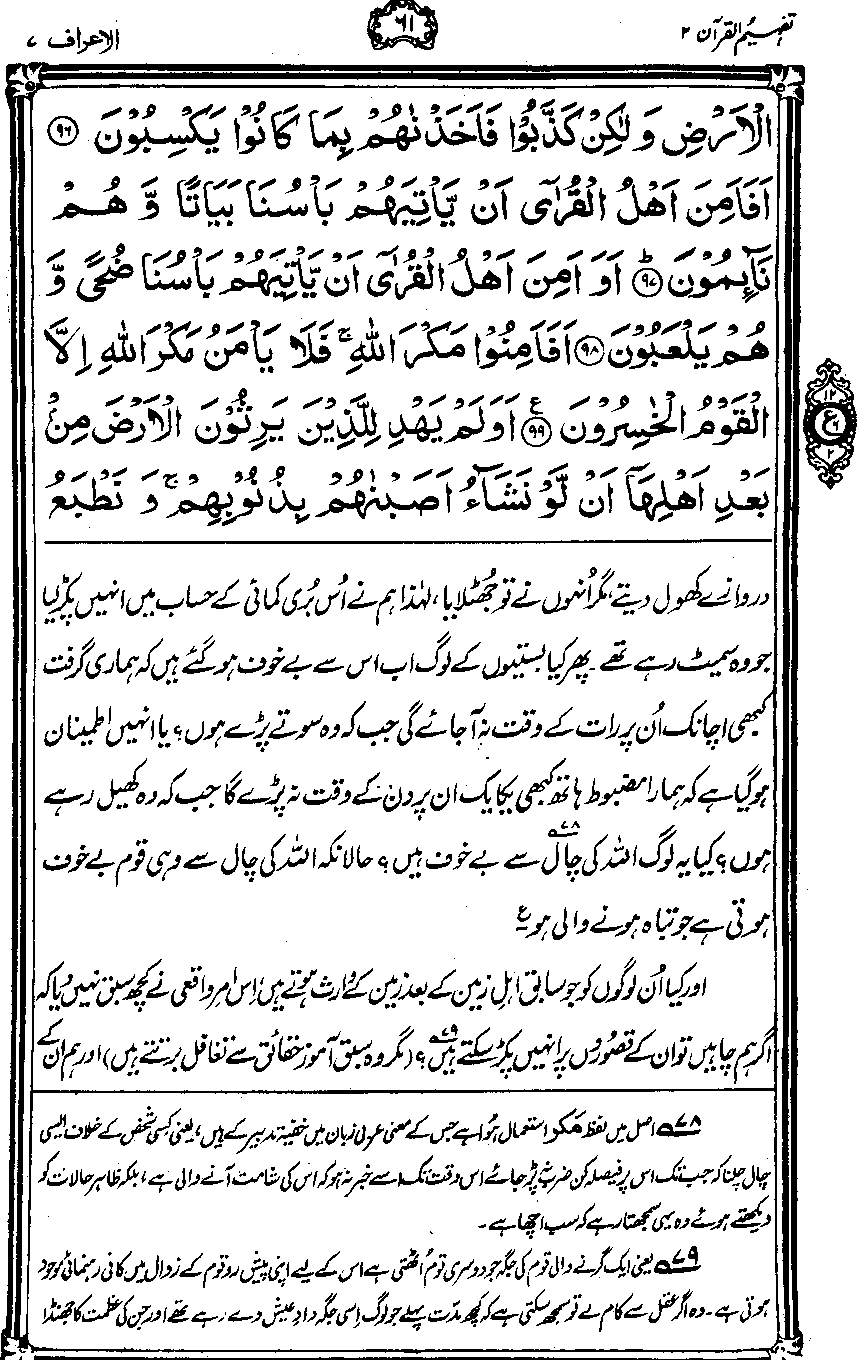 تفہیم القرآن ۲
۶۱
الاعراف ۷
الْاَرْضِ وَلٰكِنْ كَذَّبُوْا فَاَخَذْنٰهُمْ بِمَا كَانُوْا يَكْسِبُوْنَ ۹۶
اَفَاَمِنَ اَهْلُ الْقُرٰٓى اَنْ يَّاْتِيَهُمْ بَاْسُنَا بَيَاتًا وَّ هُمْ
نَآئِمُوْنَ ؕ۹۷ اَوَ اَمِنَ اَهْلُ الْقُرٰٓى اَنْ يَّاْتِيَهُمْ بَاْسُنَا ضُحًى وَّ
هُمْ يَلْعَبُوْنَ ۹۸ اَفَاَمِنُوْا مَكْرَ اللّٰهِ ۚ فَلَا يَاْمَنُ مَكْرَ اللّٰهِ اِلَّا
الْقَوْمُ الْخٰسِرُوْنَ ۹۹ ع اَوَلَمْ يَهْدِ لِلَّذِيْنَ يَرِثُوْنَ الْاَرْضَ مِنْۢ
بَعْدِ اَهْلِهَاۤ اَنْ لَّوْ نَشَآءُ اَصَبْنٰهُمْ بِذُنُوْبِهِمْ ۚ وَ نَطْبَعُ
۱۲
ع
۶
۲
دروازے کھول دیتے، مگر اُنہوں نے تو جھُٹلایا، لہٰذا ہم نے اُس بُری کمائی کے حساب میں انہیں پکڑ لیا
جو وہ سمیٹ رہے تھے۔ پھر کیا بستیوں کے لوگ اب اس سے بے خوف ہو گئے ہیں کہ ہماری گرفت
کبھی اچانک اُن پر رات کے وقت نہ آ جائے گی جب کہ وہ سوتے پڑے ہوں؟ یا انہیں اطمینان
ہو گیا ہے کہ ہمارا مضبوط ہاتھ کبھی یکایک ان پر دن کے وقت نہ پڑے گا جب کہ وہ کھیل رہے
ہوں؟ کیا یہ لوگ اللہ کی چال۷۸ سے بے خوف ہیں؟ حالانکہ اللہ کی چال سے وہی قوم بے خوف
ہوتی ہے جو تباہ ہونے والی ہو ع
اور کیا اُن لوگوں کو جو سابق اہلِ زمین کے بعد زمین کے وارث ہوتے ہیں، اِس امرِ واقعی نے کچھ سبق نہیں دیا کہ
اگر ہم چاہیں تو ان کے قصوروں پر انہیں پکڑ سکتے ہیں۷۹؟ (مگر وہ سبق آموز حقائق سے تغافل برتتے ہیں) اور ہم ان کے
۷۸ اصل میں لفظ مَکر استعمال ہُوا ہے جس کے معنی عربی زبان میں خفیہ تدبیر کے ہیں، یعنی کسی شخص کے خلاف ایسی
چال چلنا کہ جب تک اس پر فیصلہ کن ضرب نہ پڑ جائے اس وقت تک اسے خبر نہ ہو کہ اس کی شامت آنے والی ہے، بلکہ ظاہر حالات کو
دیکھتے ہوئے وہ یہی سمجھتا رہے کہ سب اچھا ہے۔
۷۹ یعنی ایک گرنے والی قوم کی جگہ جو دوسری قوم اُٹھتی ہے اس کے لیے اپنی پیش رو قوم کے زوال میں کافی رہنمائی موجود
ہوتی ہے۔ وہ اگر عقل سے کام لے تو سمجھ سکتی ہے کہ کچھ مدّت پہلے جو لوگ اِسی جگہ دادِ عیش دے رہے تھے اور جن کی عظمت کا جھنڈا